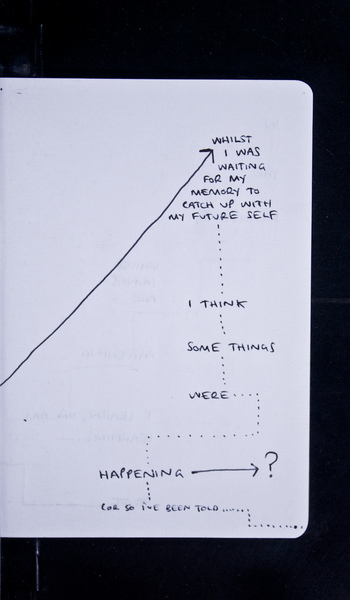 WHILST
I WAS
WAITING
FOR MY
MEMORY TO
CATCH UP WITH
MY FUTURE SELF
I THINK
SOME THINGS
WERE
HAPPENING ?
(OR SO I'VE BEEN TOLD